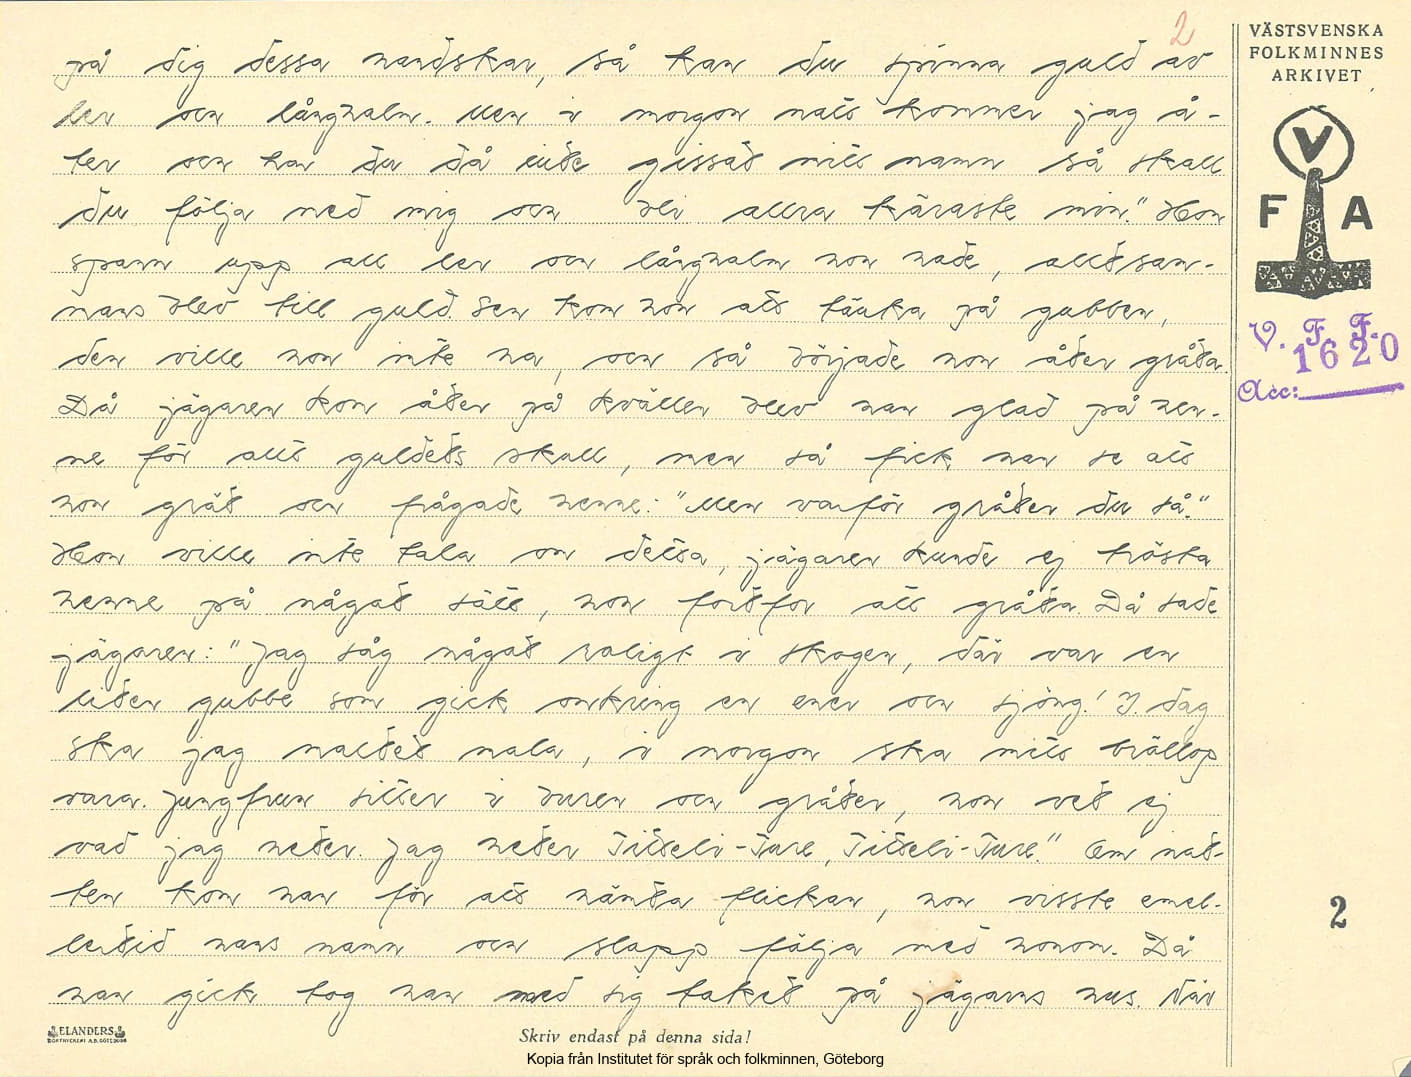 2
på dig dessa handskar, så kan du spinna guld av
ler och långhalm. Men i morgon natt kommer jag å-
ter och har du då inte gissat mitt namn så skall
du följa med mig och bli allra käraste min." Hon
spann upp all ler och långhalm hon hade, alltsam-
mans blev till guld. Sen kom hon att tänka på gubben,
den ville hon inte ha, och så började hon åter gråta.
Då jägaren kom åter på kvällen blev han glad på hen-
ne för allt guldets skull, men så fick han se att
hon grät och frågade henne: "Men varför gråter du så."
Hon ville inte tala om detta, jägaren kunde ej trösta
henne på något sätt, hon fortfor att gråta. Då sade
jägaren: "Jag såg något roligt i skogen, där var en
liten gubbe som gick omkring en ener och sjöng: 'I dag
ska jag maltet mala, i morgon ska mitt bröllop
vara. Jungfrun sitter i buren och gråter, hon vet ej
vad jag heter. Jag heter Titteli-Ture, Titteli-Ture." Om nat-
ten kom han för att hämta flickan, hon visste emel-
lertid hans namn och slapp följa med honom. Då
han gick tog han med sig taket på jägarns hus. När
VÄSTSVENSKA
FOLKMINNES
ARKIVET
V
F A
V. F. F.
1620
Acc:
2
ELANDERS
Skriv endast på denna sida!
Kopia från Institutet för språk och folkminnen, Göteborg